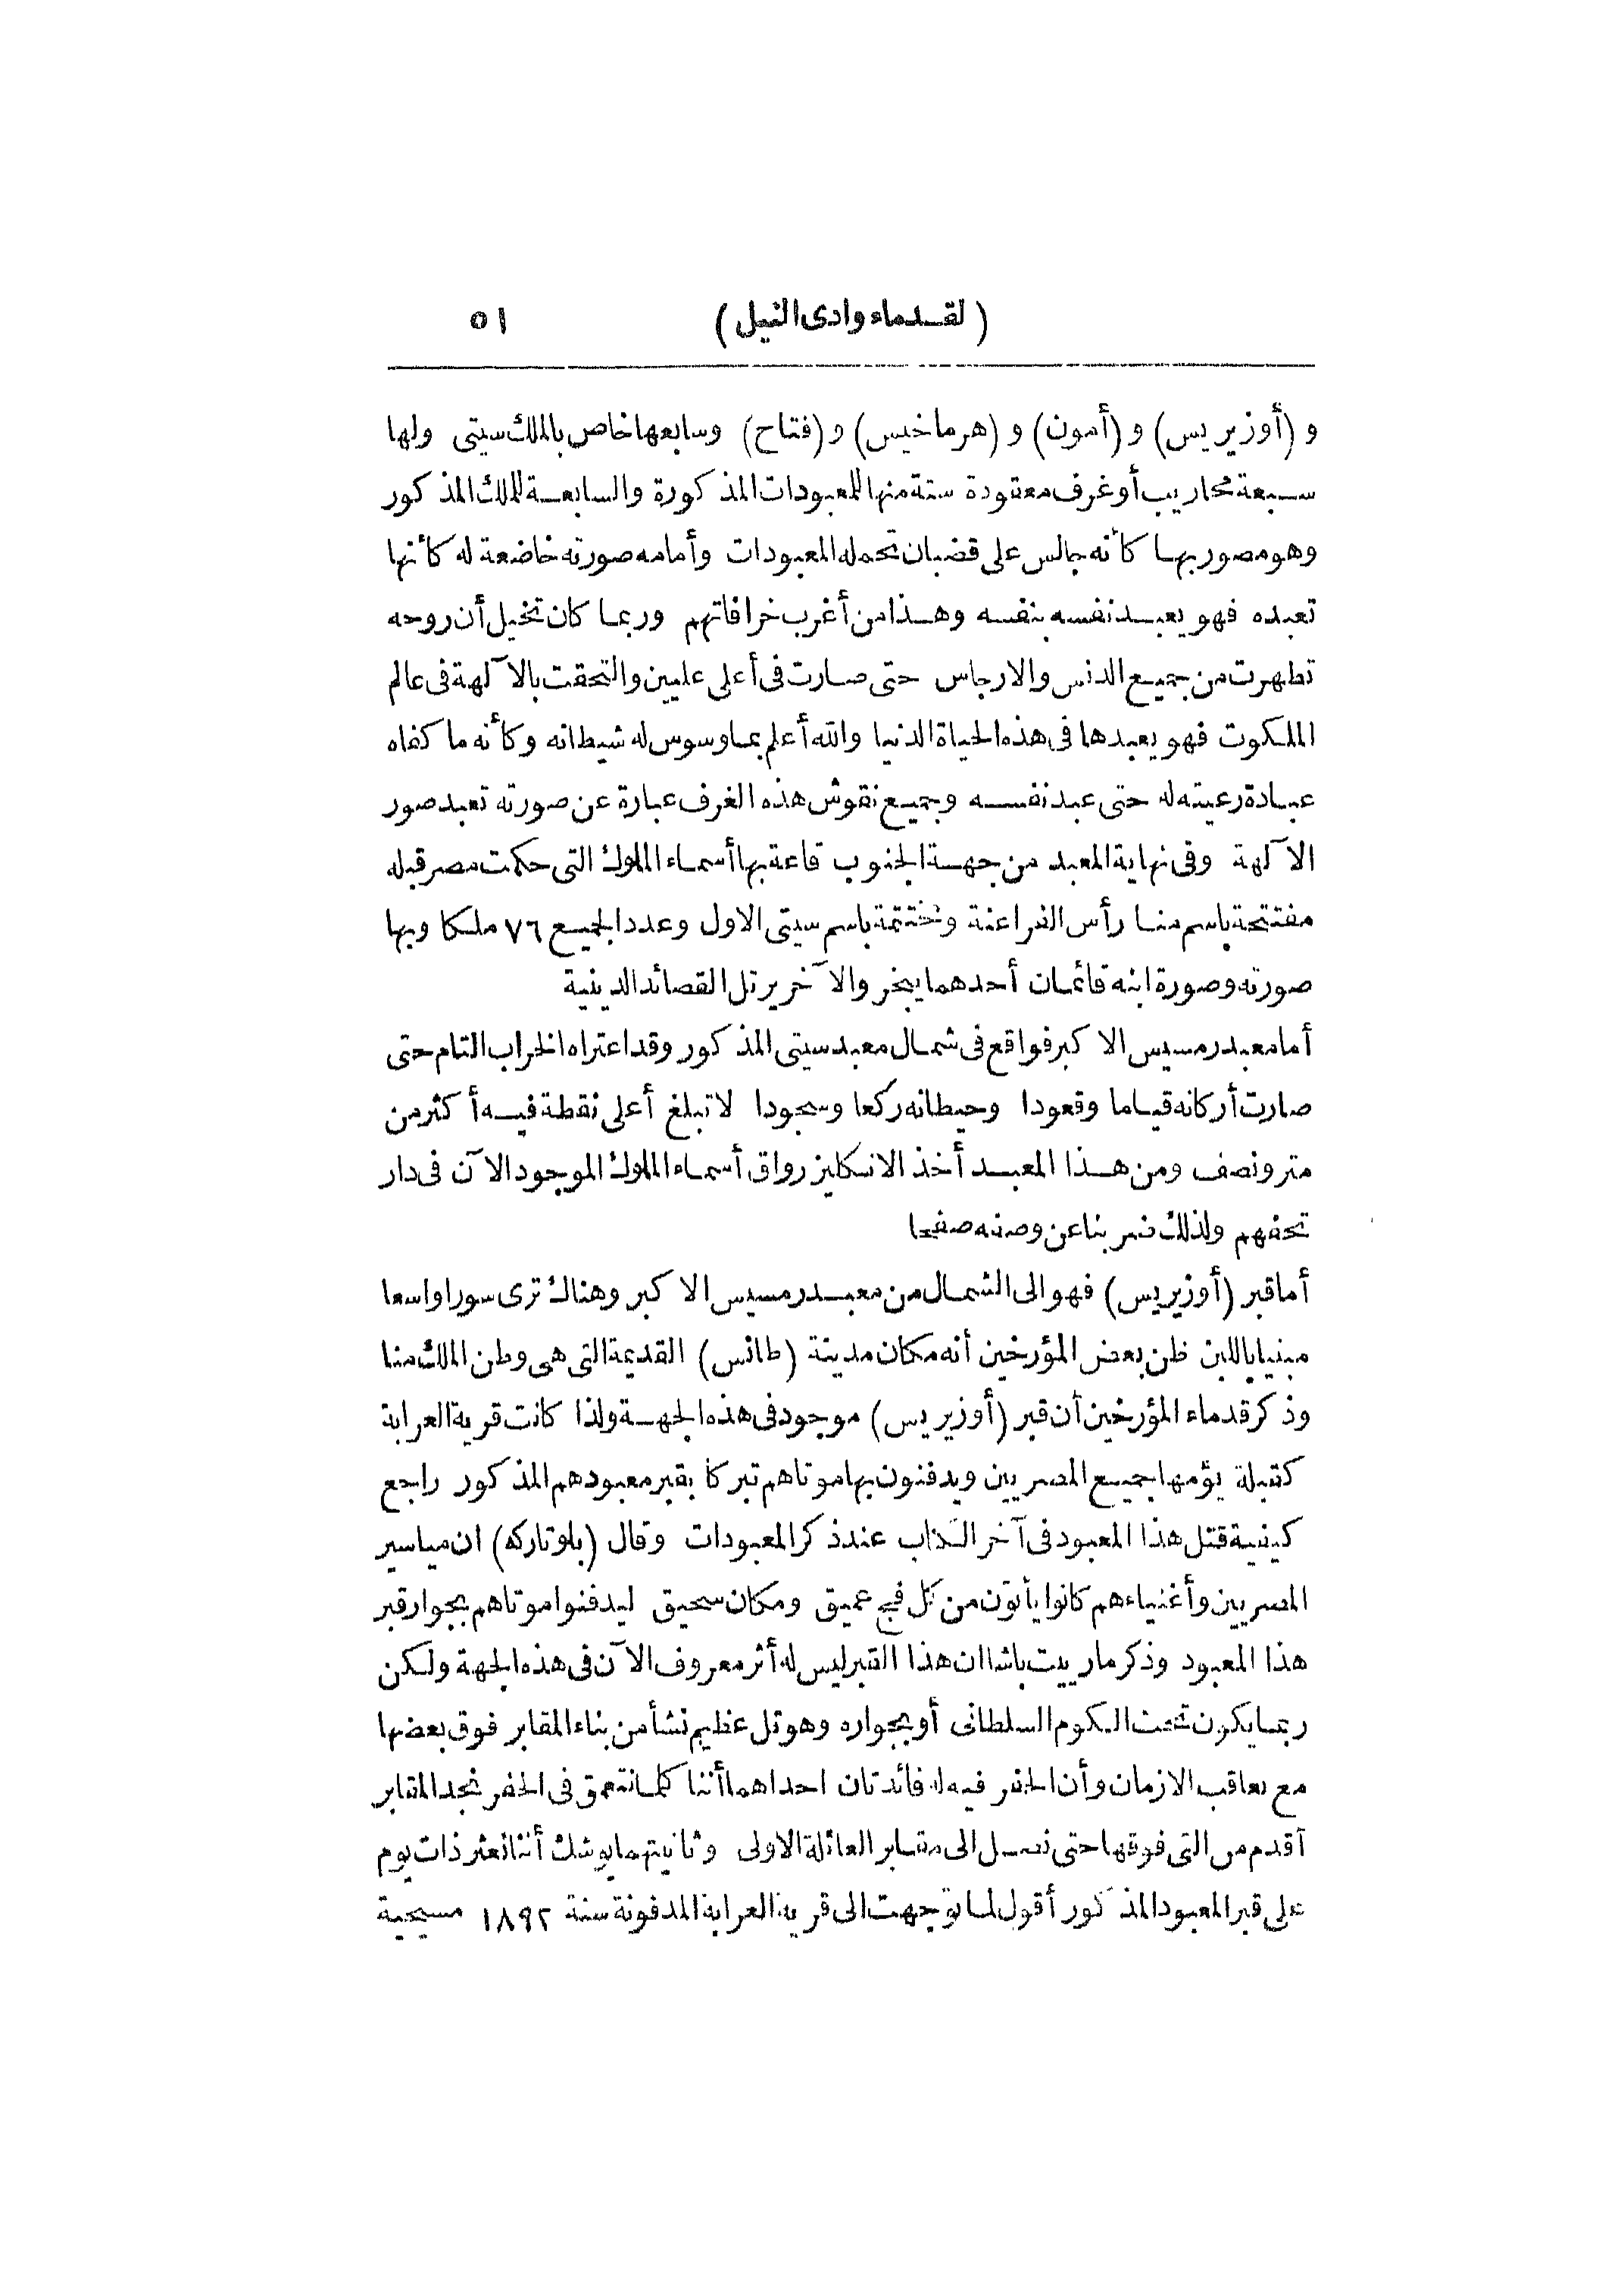 (لقدماء وادى النيل) ٥١
و (أوزيريس) و (أمون) و (هرماخيس) و (فتاح) وسابعها خاص بالملك سيتى ولها
سبعة محاريب أو غرف معقودة ستة منها للمعبودات المذكورة والسابعة للملك المذكور
وهو مصور بها كأنه جالس على قضبان تحمله المعبودات وأمامه صورته خاضعة له كأنها
تعبده فهو يعبد نفسه بنفسه وهذا من أغرب خرافاتهم وربما كان تخيل أن روحه
تطهرت من جميع الدنس والارجاس حتى صارت فى أعلى عليين والتحقت بالآلهة فى عالم
الملكوت فهو يعبدها فى هذه الحياة الدنيا والله أعلم بما وسوس له شيطانه وكأنه ما كفاه
عبادة رعيته له حتى عبد نفسه وجميع نقوش هذه الغرف عبارة عن صورته تعبد صور
الآلهة وفى نهاية المعبد من جهة الجنوب قاعة بها أسماء الملوك التى حكمت مصر قبله
مفتتحة باسم منا رأس الفراعنة ومختتمة باسم سيتى الاول وعدد الجميع ٧٦ ملكا وبها
صورته وصورة ابنه قائمان أحدهما يبخر والآخر يرتل القصائد الدينية
أما معبد رمسيس الاكبر فواقع فى شمال معبد سيتى المذكور وقد اعتراه الخراب التام حتى
صارت أركانه قياما وقعودا وحيطانه ركعا وسجودا لا تبلغ أعلى نقطة فيه أكثر من
متر ونصف ومن هذا المعبد أخذ الانكليز رواق أسماء الملوك الموجود الآن فى دار
تحفهم ولذلك ضربنا عن وصفه صفحا
أما قبر (أوزيريس) فهو الى الشمال من معبد رمسيس الاكبر وهناك ترى سورا واسعا
مبنيا باللبن ظن بعض المؤرخين أنه مكان مدينة (طانس) القديمة التى هى وطن الملك منا
وذكر قدماء المؤرخين أن قبر (أوزيريس) موجود فى هذه الجهة ولذا كانت قرية العرابة
كقبلة يؤمها جميع المصريين ويدفنون بها موتاهم تبركا بقبر معبودهم المذكور راجع
كيفية قتل هذا المعبود فى آخر الكتاب عند ذكر المعبودات وقال (بلوتاركه) ان مياسير
المصريين وأغنياءهم كانوا يأتون من كل فج عميق ومكان سحيق ليدفنوا موتاهم بجوار قبر
هذا المعبود وذكر مارييت باشا ان هذا القبر ليس له أثر معروف الآن فى هذه الجهة ولكن
ربما يكون تحت الكوم السلطانى أو بجواره وهو تل عظيم نشأ من بناء المقابر فوق بعضها
مع تعاقب الازمان وأن الحفر فيه له فائدتان احداهما أننا كلما نتعمق فى الحفر نجد المقابر
أقدم من التى فوقها حتى نصل الى مقابر العائلة الاولى وثانيتهما يوشك أننا نعثر ذات يوم
على قبر المعبود المذكور أقول لما توجهت الى قرية العرابة المدفونة سنة ١٨٩٢ مسيحية